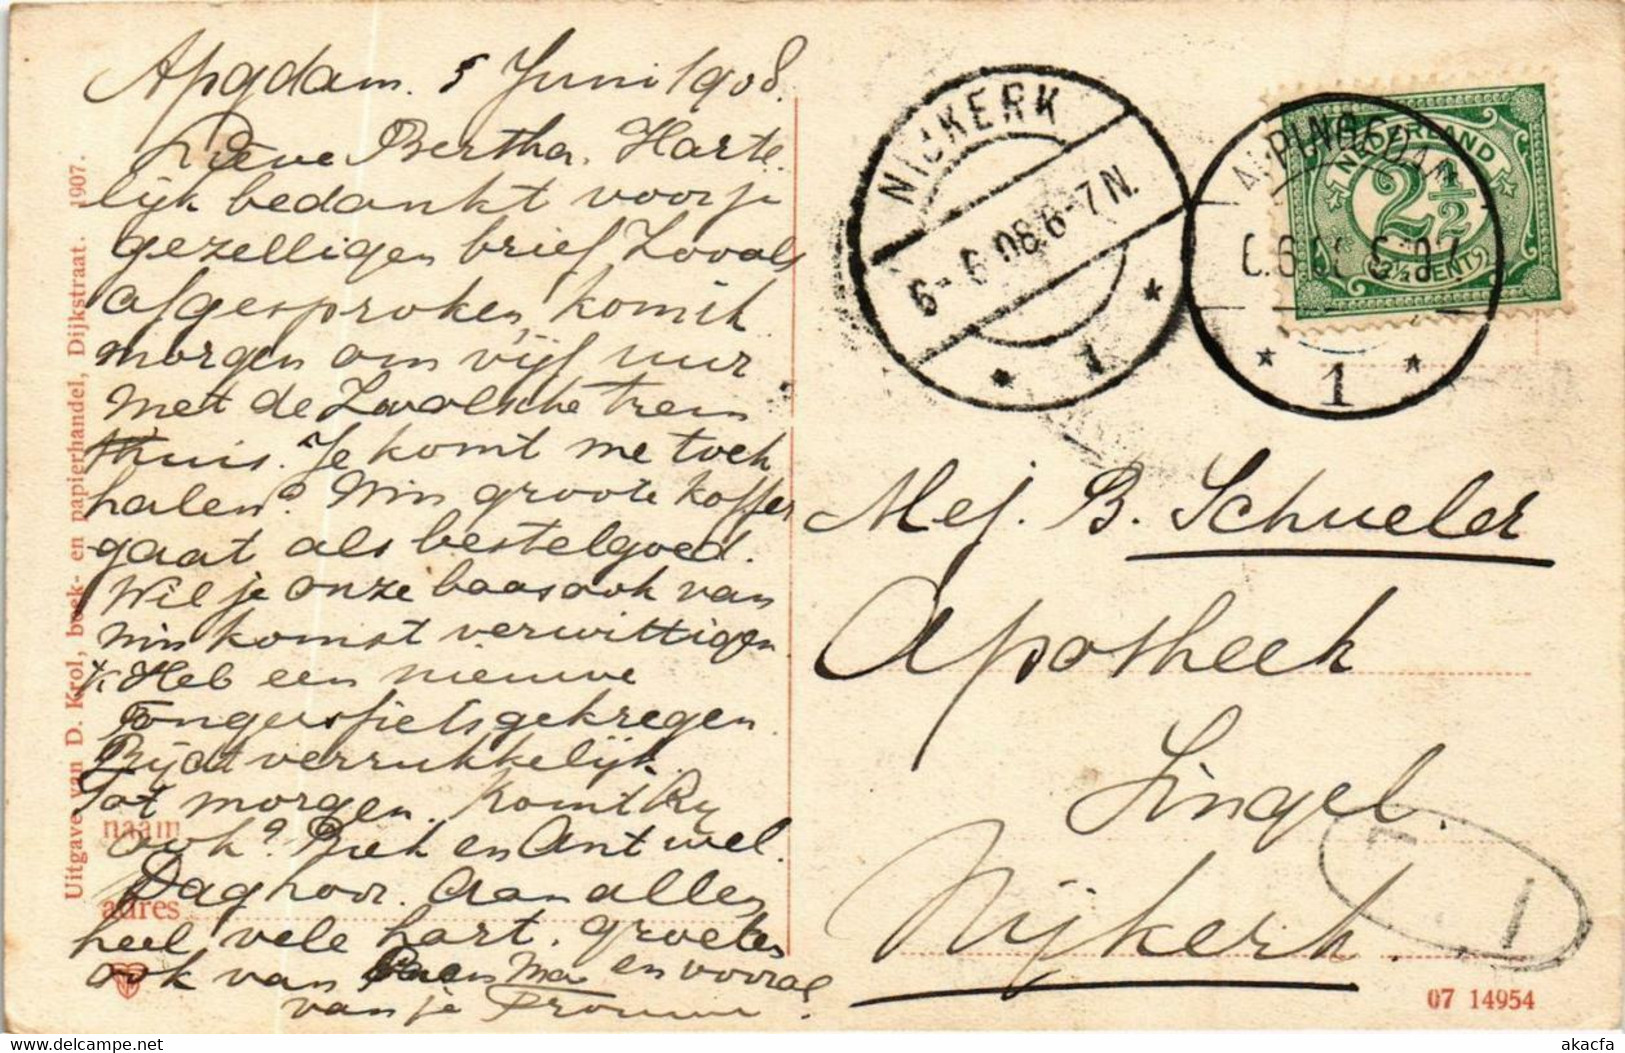 Apgdam. 5 Juni 1908.
Lieve Bertha. Harte
lijk bedankt voor je
gezelligen brief Zooals
afgesproken, kom ik
morgen om vijf uur
met de Zwolsche trein
thuis. Je komt me toch
halen? Mijn groote koffer
gaat als bestelgoed.
Wil je onze baas ook van
mijn komst verwittigen
'k Heb een nieuwe
Fongersfiets gekregen
Rijdt verrukkelijk.
Tot morgen. Komt Ry
ook? Ziek en Ant wel.
Dag hoor. Aan allen
heel vele hart. groeten
ook van Ma en vooral
van je
Uitgave van D. Krol, boek- en papierhandel, Dijkstraat. 1907.
naam
adres
NIJKERK
6-6.08.6-7N.
1
APPINGEDAM
1
NEDERLAND
2½
(2½ CENT)
Mej. B. Schueler
Apotheek
Singel.
Nijkerk.
07 14954
akacfa